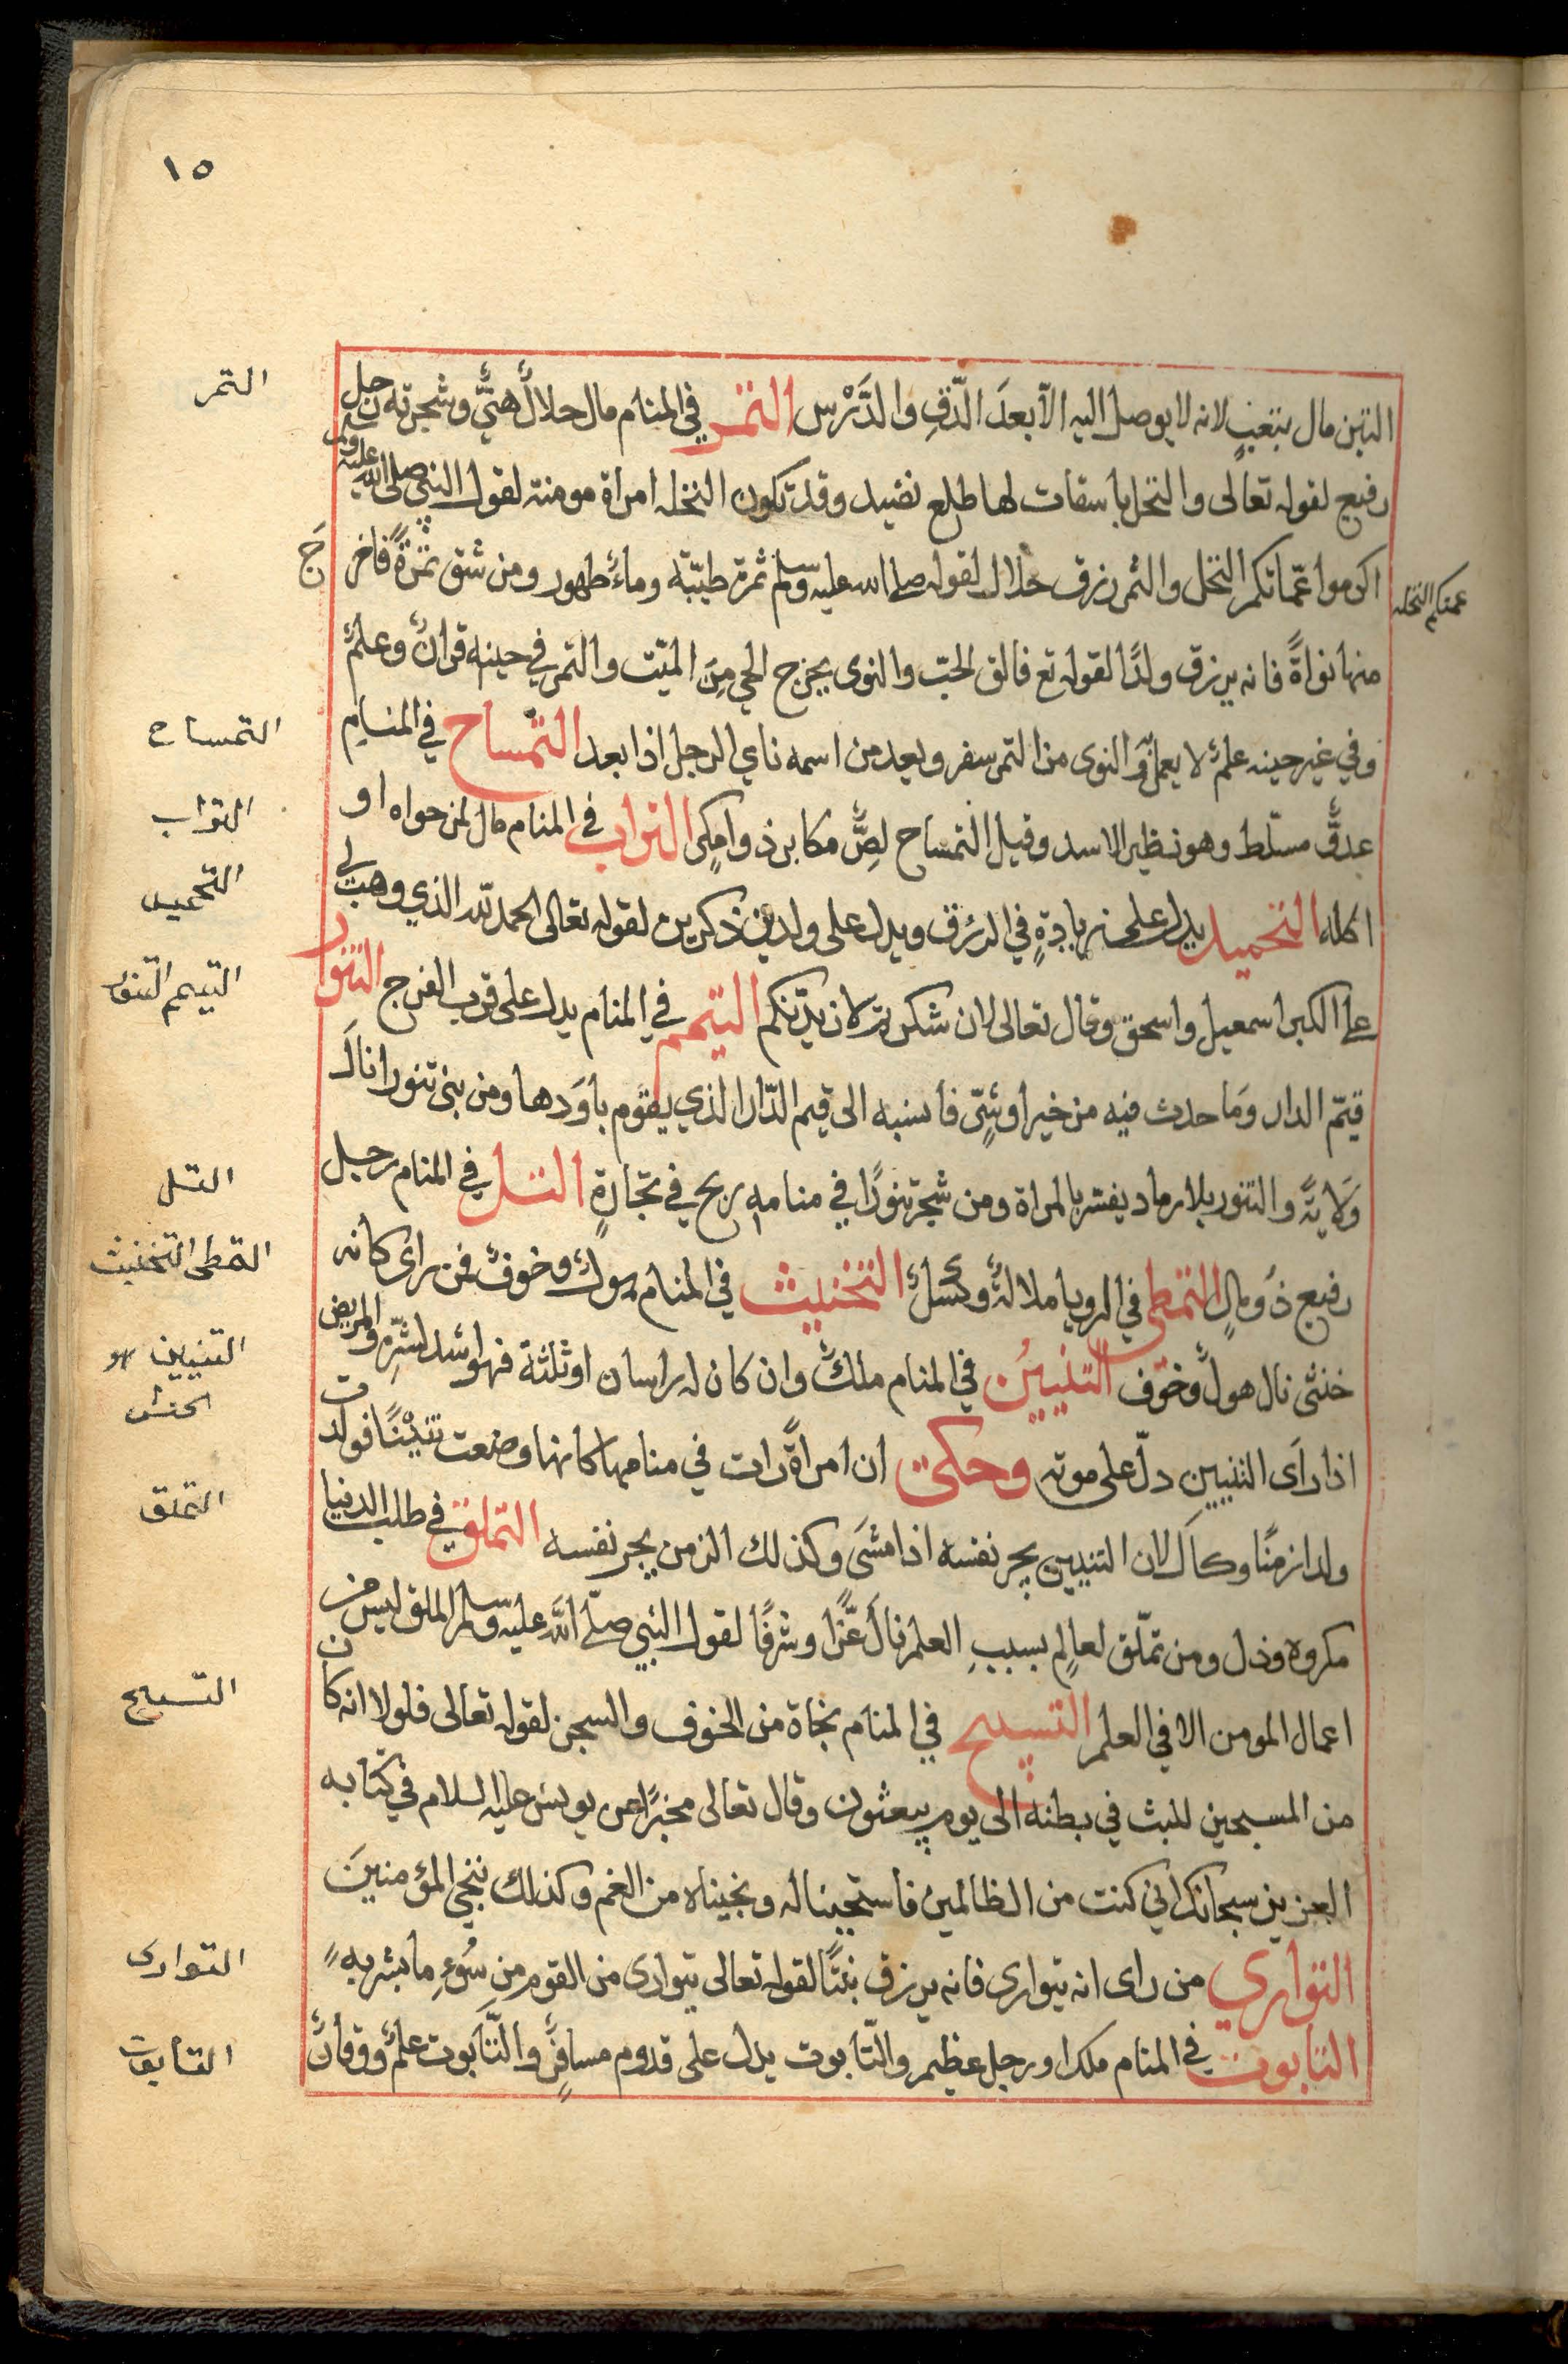 ١٥
التبن مال بتعب لانه لا يوصل اليه الا بعدَ الدّقِ والدَّرْس التمر في المنام مال حلالٌ هنيٌّ وشجرته رجل
رفيع لقوله تعالى والنخل باسقات لها طلع نضيد وقد تكون النخله امراة مومنة لقول النبي صلى الله عليه وسلم
اكرموا عمّاتكم النخل والتمر رزق حلال لقوله صلى الله عليه وسلم ثمرة طيّبة وماءٌ طهور ومن شق تمرةً فاخرج
عمتكم النخله
منها نواةً فانه يرزق ولدًا لقوله تع فالق الحبّ والنوى يخرج الحي مِنَ الميّت والتمر في حينه قرانٌ وعلمٌ
وفي غير حينه علمٌ لا يعمل والنوى من التمر سفر وبعد من اسمه ناي الرجل اذا بعد التمساح في المنام
عدوٌّ مسلّط وهو نظير الاسد وقيل التمساح لِصٌّ مكابر ذو امكر التراب في المنام مال لمن حواه او
اكله التحميد يدل على زيادةٍ في الرزق ويدل على ولدين ذكرين لقوله تعالى الحمد لله الذي وهب لي
على الكبر اسمعيل واسحق وقال تعالى لان شكرتم لازيدّنكم التيمم في المنام يدل على قرب الفرج التنور
قيّم الدار وَما حدث فيه من خير او شرٍّ فانسبه الى قيم الدّار الذي يقوم باوَدها ومن بنى تنورا نالَ
وَلايةً والتنور بلا رماد يفسر بالمراة ومن شجر تنورًا في منامه ربح في تجارةٍ التل في المنام رجل
رفيع ذَو مالٍ التمطي في الرويا ملالةٌ وكسَلٌ التخنيث في المنام هولٌ وخوفٌ فمن راى كانه
خنثى نال هولٌ وخوف التنيين في المنام ملكٌ وان كان له راسان او ثلثة فهو اشد لشرّه والمريض
اذا رَاى التنيين دلّ على موته وحكي ان امراةً رات في منامها كانها وضعت تنيْنًا فولدت
ولدا زمنًا وكَالَ لان التنيين يجر نفسه اذا مشَى وكذلك الزمن يجر نفسه التملق في طلب الدنيا
مكروه وذل ومن تملّق لعالِم بسببِ العلم نالَ عزًّا وشرفًا لقول النبي صلّى اللَّه عليه وسلم الملق ليس من
اعمال المومن الا في العلم التسبيح في المنام نجاة من الخوف والسجن لقوله تعالى فلولا انه كان
من المسبحين للبث في بطنه الى يوم يبعثون وقال تعالى مخبرًا عن يونس عليه السلام في كتابه
العزيز سبحانك اني كنت من الظالمين فاستجبنا له ونجيناه من الغم وكذلك ننجي المؤمنينَ
التواري من راى انه يتوارى فانه يرزق بنتًا لقوله تعالى يتوارى من القوم من سُوءِ ما بشر به
التابوت في المنام ملك او رجل عظيم والتّابوت يدل على قدوم مسافرٍ والتَّابوت علمٌ وقرانٌ
التمر
التمساح
التراب
التحميد
التيمم التنور
التل
التمطى التخنيث
التنيين هو
الحنش
التملق
التسبيح
التوارى
التابوت